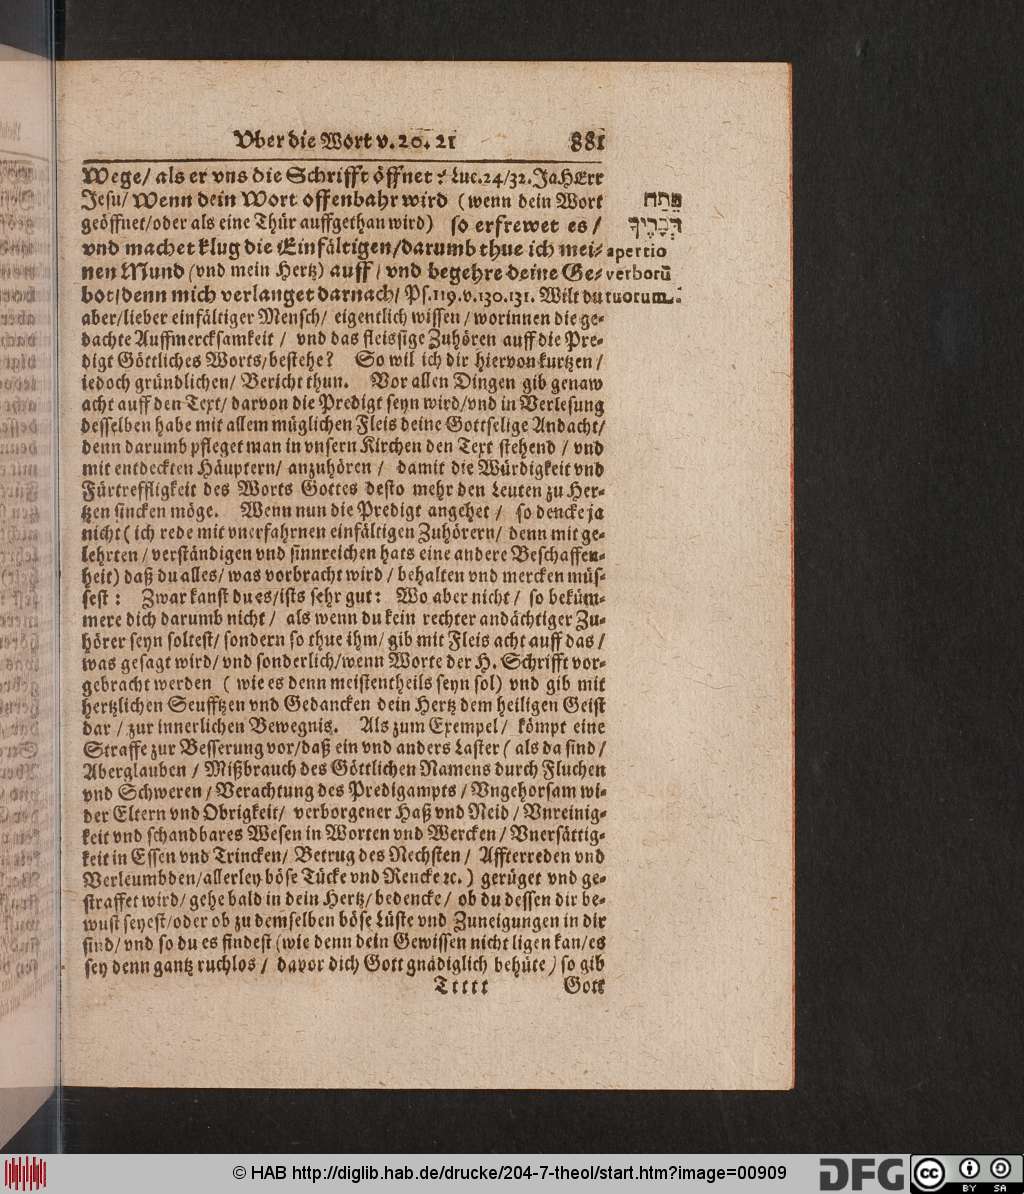 Vber die Wort v. 20. 21 881
Wege/ als er vns die Schrifft öffnet? Luc. 24/32. Ja HErr
Jesu/ Wenn dein Wort offenbahr wird (wenn dein Wort
geöffnet/oder als eine Thür auffgethan wird) so erfrewet es/
vnd machet klug die Einfältigen/darumb thue ich mei-
nen Mund (vnd mein Hertz) auff/ vnd begehre deine Ge-
bot/denn mich verlanget darnach/ Ps. 119. v. 130. 131. Wilt du
פֵּתַח
דְּבָרֶיךָ
apertio
verborū
tuorum.
aber/lieber einfältiger Mensch/ eigentlich wissen/ worinnen die ge-
dachte Auffmercksamkeit/ vnd das fleissige Zuhören auff die Pre-
digt Göttliches Worts/bestehe? So wil ich dir hiervon kurtzen/
iedoch gründlichen/ Bericht thun. Vor allen Dingen gib genaw
acht auff den Text/ darvon die Predigt seyn wird/vnd in Verlesung
desselben habe mit allem müglichen Fleis deine Gottselige Andacht/
denn darumb pfleget man in vnsern Kirchen den Text stehend/ vnd
mit entdeckten Häuptern/ anzuhören/ damit die Würdigkeit vnd
Fürtreffligkeit des Worts Gottes desto mehr den Leuten zu Her-
tzen sincken möge. Wenn nun die Predigt angehet/ so dencke ja
nicht (ich rede mit vnerfahrnen einfältigen Zuhörern/ denn mit ge-
lehrten/ verständigen vnd sinnreichen hats eine andere Beschaffen-
heit) daß du alles/ was vorbracht wird/ behalten vnd mercken müs-
sest: Zwar kanst du es/ists sehr gut: Wo aber nicht/ so beküm-
mere dich darumb nicht/ als wenn du kein rechter andächtiger Zu-
hörer seyn soltest/ sondern so thue ihm/ gib mit Fleis acht auff das/
was gesagt wird/ vnd sonderlich/wenn Worte der H. Schrifft vor-
gebracht werden (wie es denn meistentheils seyn sol) vnd gib mit
hertzlichen Seufftzen vnd Gedancken dein Hertz dem heiligen Geist
dar/ zur innerlichen Bewegnis. Als zum Exempel/ kömpt eine
Straffe zur Besserung vor/daß ein vnd anders Laster (als da sind/
Aberglauben/ Mißbrauch des Göttlichen Namens durch Fluchen
vnd Schweren/ Verachtung des Predigampts/ Vngehorsam wi-
der Eltern vnd Obrigkeit/ verborgener Haß vnd Neid/ Vnreinig-
keit vnd schandbares Wesen in Worten vnd Wercken/ Vnersättig-
keit in Essen vnd Trincken/ Betrug des Nechsten/ Affterreden vnd
Verleumbden/allerley böse Tücke vnd Rencke ꝛc.) gerüget vnd ge-
straffet wird/ gehe bald in dein Hertz/ bedencke/ ob du dessen dir be-
wust seyest/oder ob zu demselben böse Lüste vnd Zuneigungen in dir
sind/ vnd so du es findest (wie denn dein Gewissen nicht ligen kan/es
sey denn gantz ruchlos/ davor dich Gott gnädiglich behüte) so gib
Ttttt Gott
© HAB http://diglib.hab.de/drucke/204-7-theol/start.htm?image=00909
DFG
cc BY SA